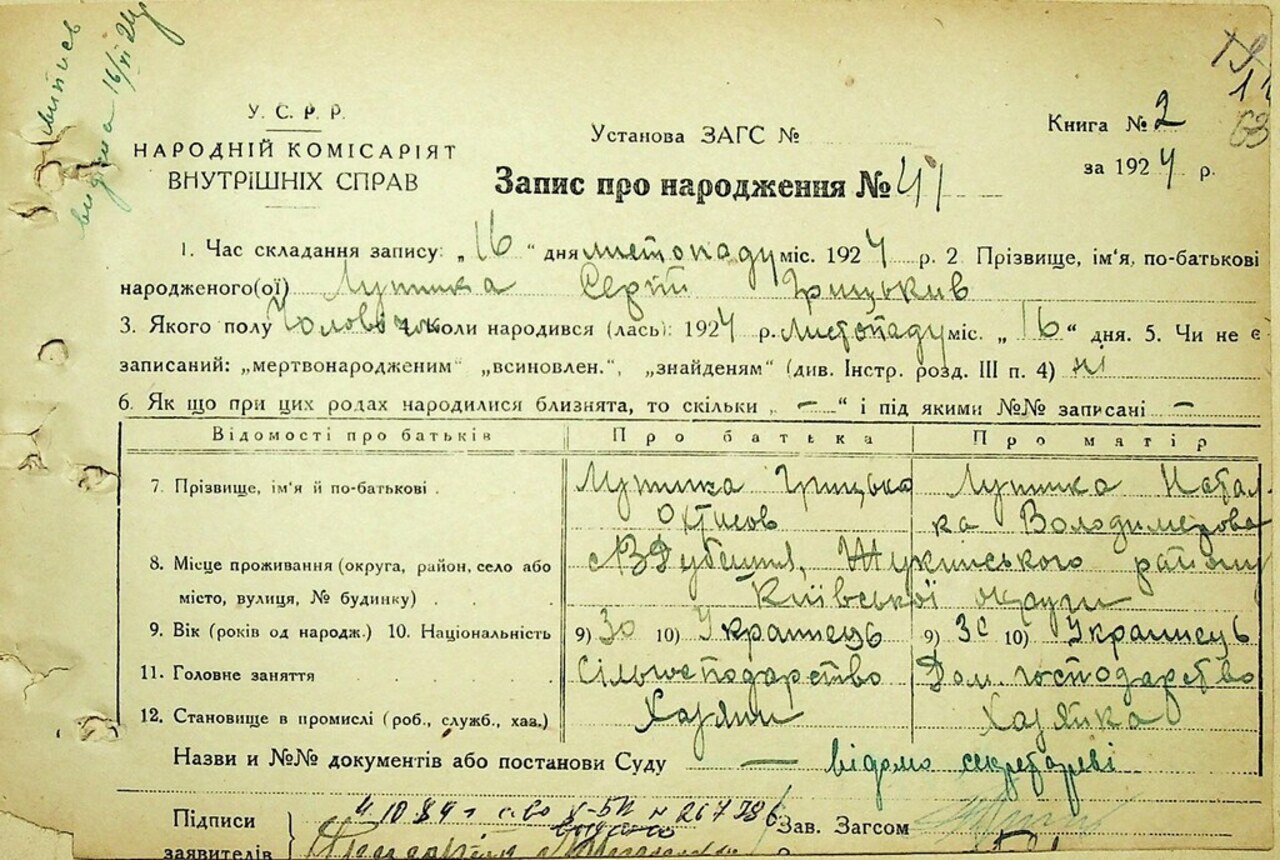 витпись
видана 16/VI 24
У. С. Р. Р.
НАРОДНІЙ КОМІСАРІЯТ
ВНУТРІШНІХ СПРАВ
Установа ЗАГС №
Запис про народження № 41
Книга № 2
за 1924 р.
63
1. Час складання запису: „16“ дня листопаду міс. 1924 р. 2. Прізвище, ім‘я, по-батькові
народженого(ої) Лупика Сергій Грицьків
3. Якого полу Чоловічок 4. Коли народився (лась): 1924 р. Листопаду міс. „16“ дня. 5. Чи не є
записаний: „мертвонародженим“ „всиновлен.“, „знайденям“ (див. Інстр. розд. III п. 4) ні
6. Як що при цих родах народилися близнята, то скільки „—“ і під якими №№ записані —
Відомості про батьків Про батька Про матір
7. Прізвище, ім‘я й по-батькові . Лупика Грицько Лупика Натал-
ка Володимерова
8. Місце проживання (округа, район, село або с В Дубешня, Жукинського району
місто, вулиця, № будинку) . . . Київської округи
9. Вік (років од народж.) 10. Національність 9) 30 10) Українець 9) 30 10) Українець
11. Головне заняття . . . . . Сільгосподарство Дом. господарство
12. Становище в промислі (роб., служб., хаз.) Хазяин Хазяйка
Назви и №№ документів або постанови Суду — відомо секретареві
Підписи 4 10 84 г с-во № 267386 Зав. Загсом
заявителів